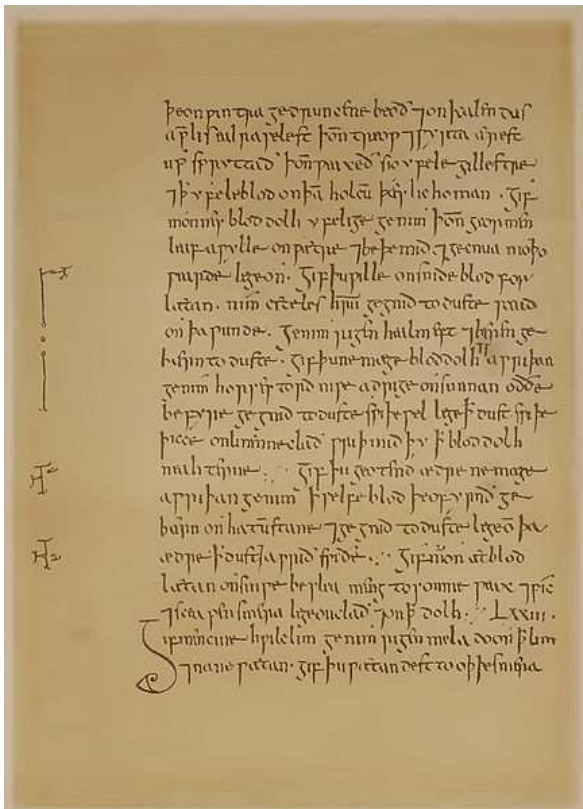 þe on ƿintra gedruncene beoð ⁊ on kalendas
aprilis ealra selest þoñ treoƿ ⁊ ƿyrta ærest
up spryttað þoñ ƿeaxeð sio yfele gillestre
⁊ ꝥ yfele blod on þā holcū þæs lichoman · Gif
monnes blod dolh yfelige genim þoñ geormen
leaf aƿylle on ƿætre ⁊ beþe mid ⁊ gecnua nioþo
ƿearde lege on · Gif þu ƿille on snide blod for
lætan · nim ceteles hrum gegnid to duste scead
on þa ƿunde · Genim rigen healm eft ⁊ beren ge
bærn to duste · gif þu ne mæge blod dolh aƿriþan
genim horses tord niƿe adrige on sunnan oððe
be fyre gegnid to duste sƿiþe ƿel lege ꝥ dust sƿiþe
þicce on linenne clað ƿriþ mid þy ꝥ blod dolh
neahterne · Gif þu geotend ædre ne mæge
aƿriþan genim ꝥ selfe blod þe of yrnð ge
bærn on hatū stane ⁊ gegnid to duste lege on þa
ædre ꝥ dust ⁊ aƿrið sƿiðe · Gif mon æt blod
lætan on sinƿe beslea meng tosomne ƿeax ⁊ pic
⁊ sceapen smera lege on clað ⁊ on ꝥ dolh · LXXIII ·
Gif men cine hƿilc lim genim rigen mela do on ꝥ lim
innane · gif þu ƿættan dest to oþþe smera